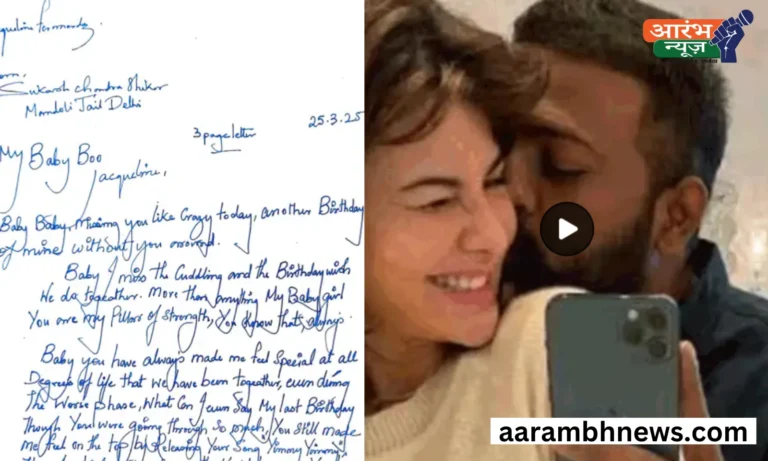 From.
Sukarsh Chandra Shikar
Mandoli Jail Delhi
3 page letter
25.3.25
My Baby Boo
Jacqueline,
Baby Baby, Missing you like Crazy today, another Birthday
of mine without you arround.
Baby I miss the Cuddling and the Birthday wish
We do togeather. More than anything My Baby girl
You are my Pillars of strength, You Know that, always
Baby you have always made me feel special at all
Degrees of life that we have been togeather, even during
The Worse phase, What Can I even Say My last Birthday
Though You were going through So much, You still made
me feel on the top by Releasing Your Song Yimmy Yimmy,
आरंभ
न्यूज़
aarambhnews.com